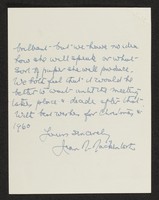 brilliant - but we have no idea
how she will speak or what
sort of paper she will produce.
We both feel that it would be
better to wait until the meeting
takes place & decide after that
what
1960
Yours sincerely
Jean R.